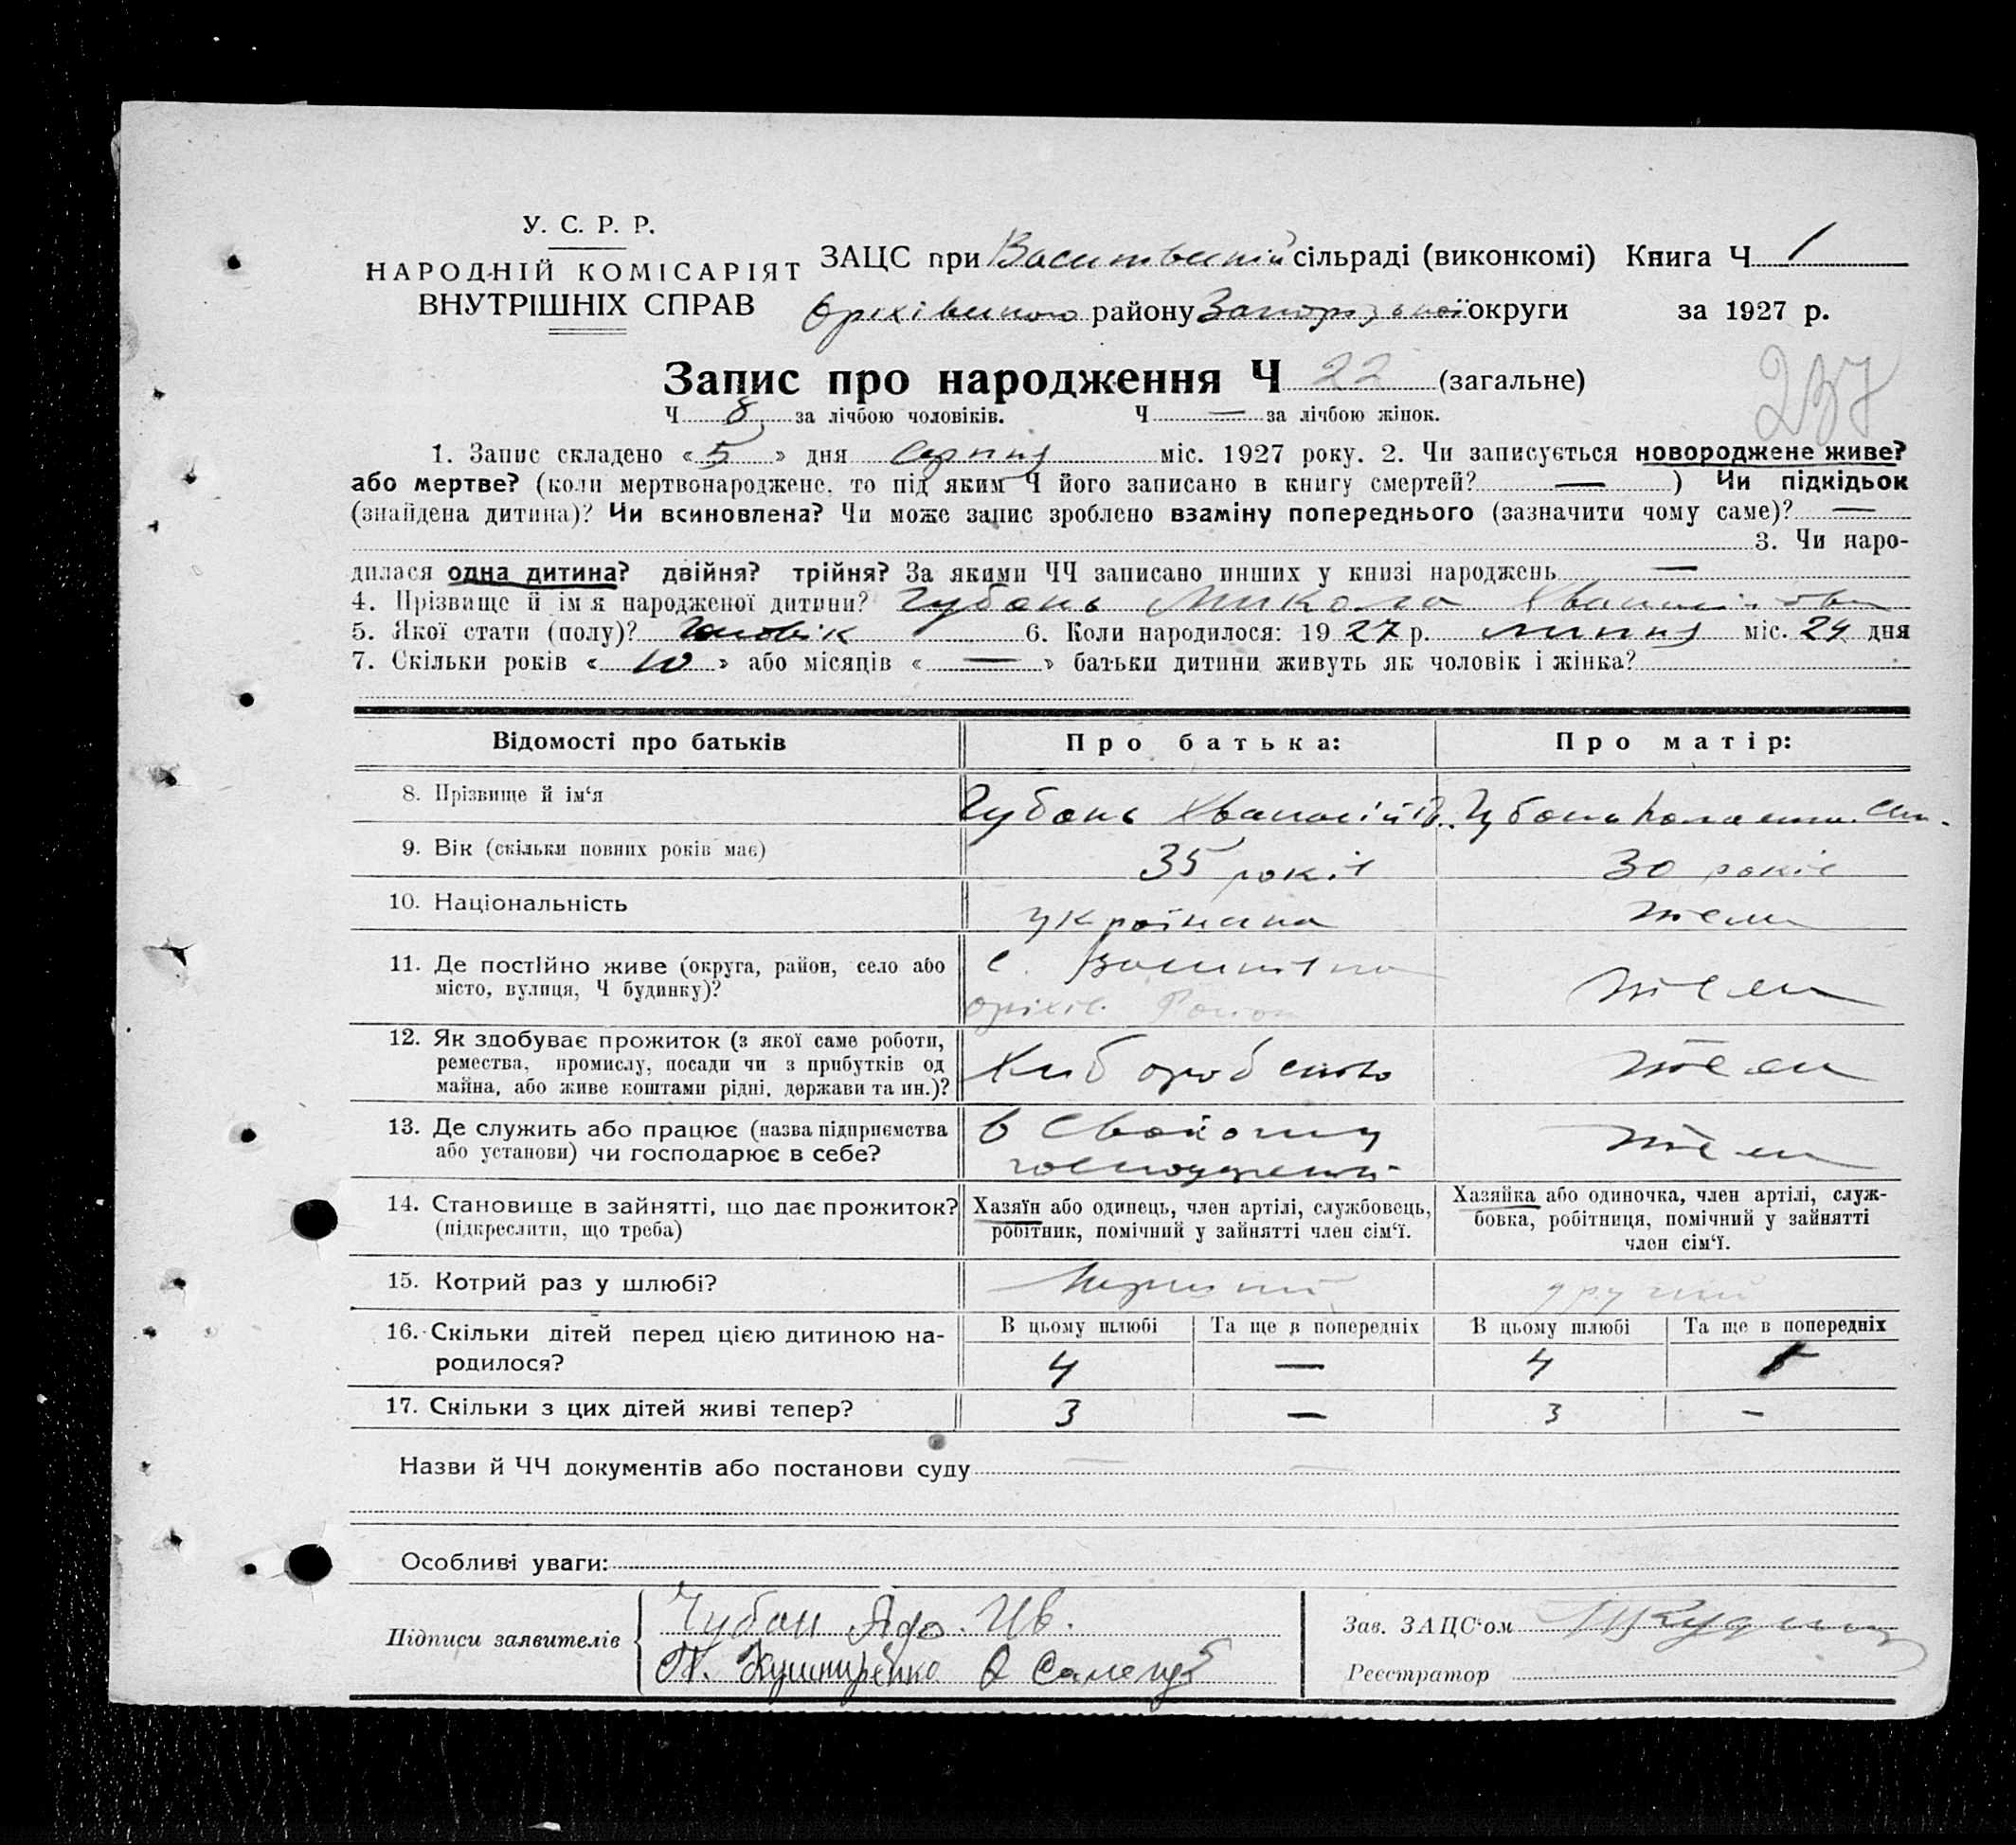 У. С. Р. Р.
НАРОДНІЙ КОМІСАРІЯТ
ВНУТРІШНІХ СПРАВ
ЗАЦС при сільраді (виконкомі) Книга Ч 1
Оріхівського району Запорізької округи за 1927 р.
Запис про народження Ч 22 (загальне)
237
Ч 8 за лічбою чоловіків. Ч — за лічбою жінок.
1. Запис складено «5» дня серпня міс. 1927 року. 2. Чи записується новороджене живе?
або мертве? (коли мертвонароджене, то під яким Ч його записано в книгу смертей? — ) Чи підкідьок
(знайдена дитина)? Чи всиновлена? Чи може запис зроблено взаміну попереднього (зазначити чому саме)? —
3. Чи наро-
дилася одна дитина? двійня? трійня? За якими ЧЧ записано инших у книзі народжень —
4. Прізвище й ім'я народженої дитини? Чубань Микола
5. Якої стати (полу)? чоловік 6. Коли народилося: 1927 р. липня міс. 24 дня
7. Скільки років «10» або місяців « — » батьки дитини живуть як чоловік і жінка?
Відомості про батьків
Про батька:
Про матір:
8. Прізвище й ім'я
Чубань Хванасій
Чубань
9. Вік (скільки повних років має)
35 років
30 років
10. Національність
українська
тоже
11. Де постійно живе (округа, район, село або
місто, вулиця, Ч будинку)?
с.
Оріхів. Район
тоже
12. Як здобуває прожиток (з якої саме роботи,
ремества, промислу, посади чи з прибутків од
майна, або живе коштами рідні, держави та ин.)?
Хліборобство
тоже
13. Де служить або працює (назва підприємства
або установи) чи господарює в себе?
в своїому
господарстві
тоже
14. Становище в зайнятті, що дає прожиток?
(підкреслити, що треба)
Хазяїн або одинець, член артілі, службовець,
робітник, помічний у зайнятті член сім'ї.
Хазяйка або одиночка, член артілі, служ-
бовка, робітниця, помічний у зайнятті
член сім'ї.
15. Котрий раз у шлюбі?
Перший
другий
16. Скільки дітей перед цією дитиною на-
родилося?
В цьому шлюбі Та ще в попередніх В цьому шлюбі Та ще в попередніх
4 — 4
17. Скільки з цих дітей живі тепер?
3 — 3 —
Назви й ЧЧ документів або постанови суду — —
Особливі уваги:
Підписи заявителів
Чубан Афо. Ив.
Кушниренко
Зав. ЗАЦС'ом
Реєстратор